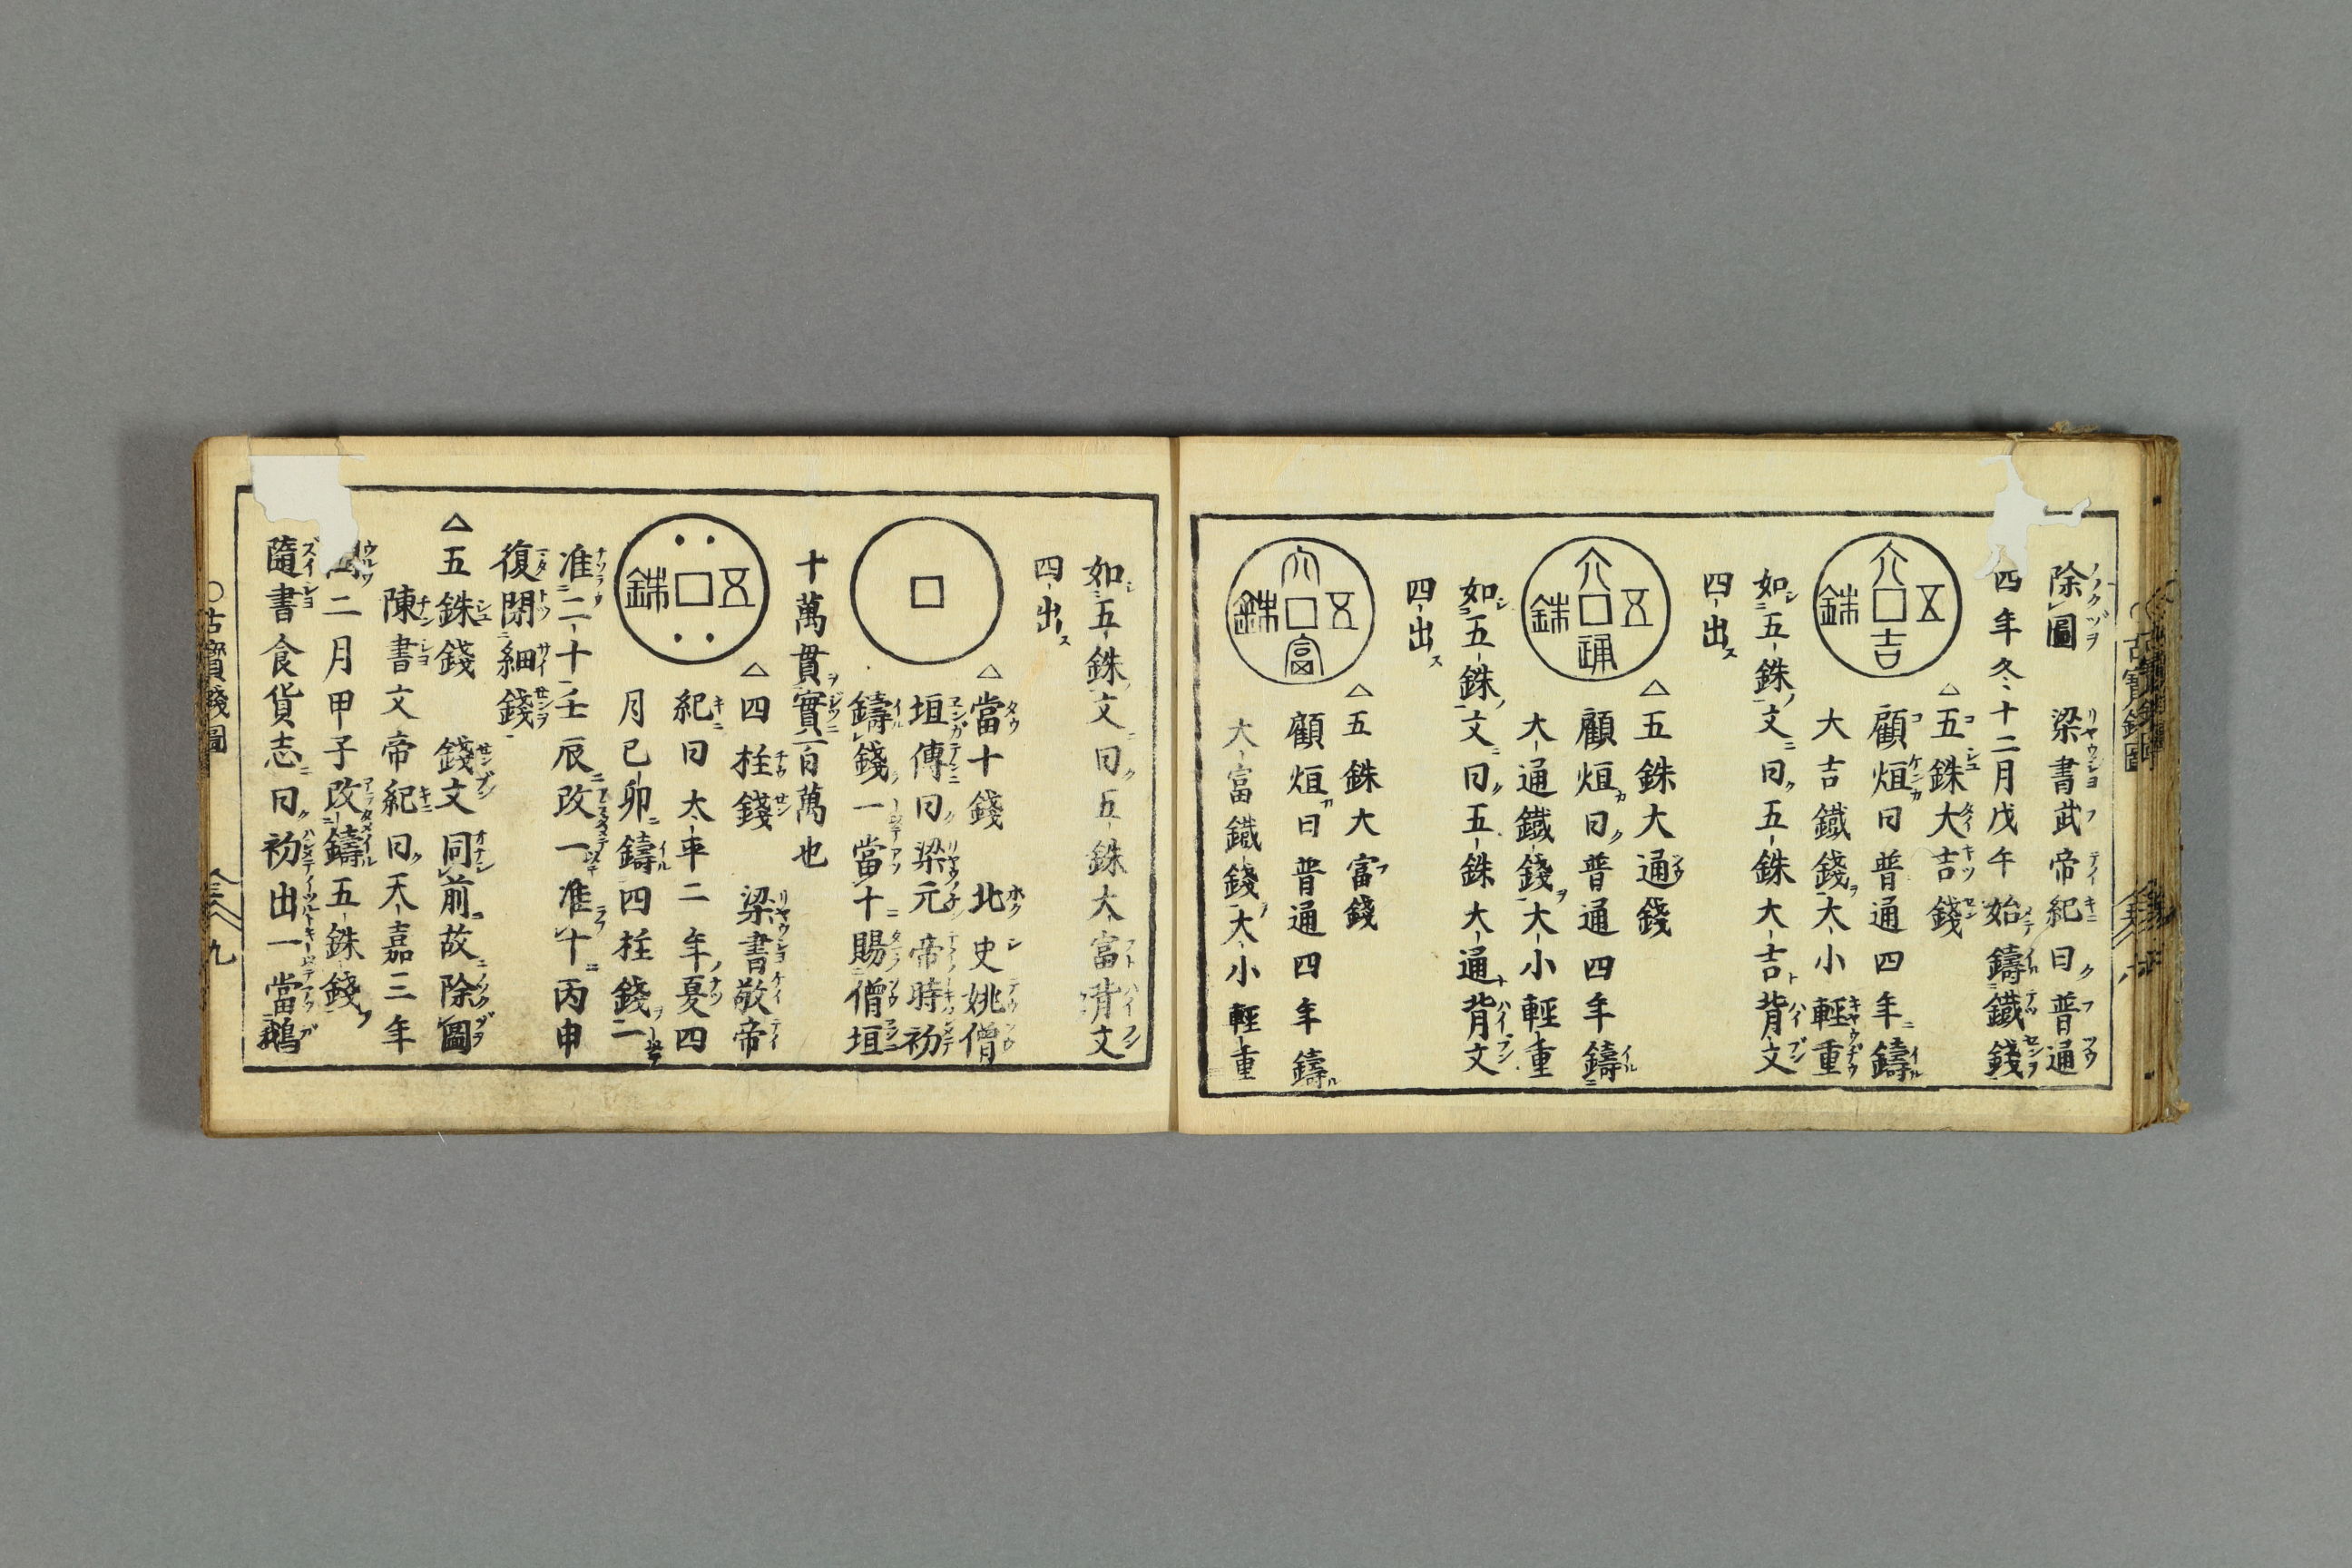 除圖 梁書武帝紀曰普通
四年冬十二月戊午始鑄鐵錢
五銖大吉
△五銖大吉錢
顧烜曰普通四年鑄
大吉鐵錢大小輕重
如五銖文曰五銖大吉背文
四出
五銖大通
△五銖大通錢
顧烜曰普通四年鑄
大通鐵錢大小輕重
如五銖文曰五銖大通背文
四出
五銖大富
△五銖大富錢
顧烜曰普通四年鑄
大富鐵錢大小輕重
如五銖文曰五銖大富背文
四出
△當十錢 北史姚僧
垣傳曰梁元帝時初
鑄錢一當十賜僧垣
十萬貫實百萬也
五銖
△四柱錢 梁書敬帝
紀曰太平二年夏四
月已卯鑄四柱錢一
准二十壬辰改一准十丙申
復閉細錢
△五銖錢 錢文同前故除圖
陳書文帝紀曰天嘉三年
二月甲子改鑄五銖錢
隨書食貨志曰初出一當鵝
○古寳錢圖 九